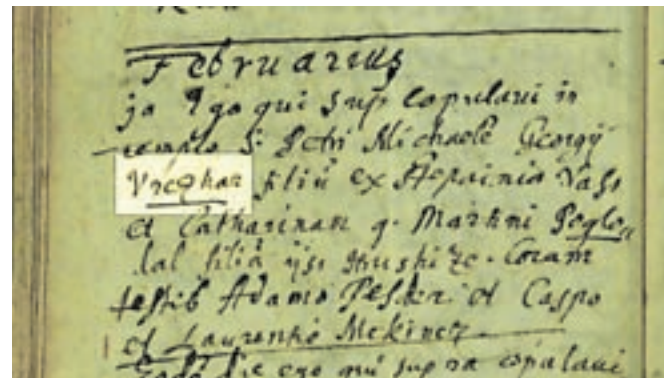 Februarius
ja Ego qui sup copulavi in
templo S: Petri Michaelē Georgÿ
Vreghar filiū ex Stepainia Vass
et Catharinam q. Martini Poglo„
filiā
testib Adamo et Caspo
et Laurentio Mekinez
Eadē die ego qui supra copulavi